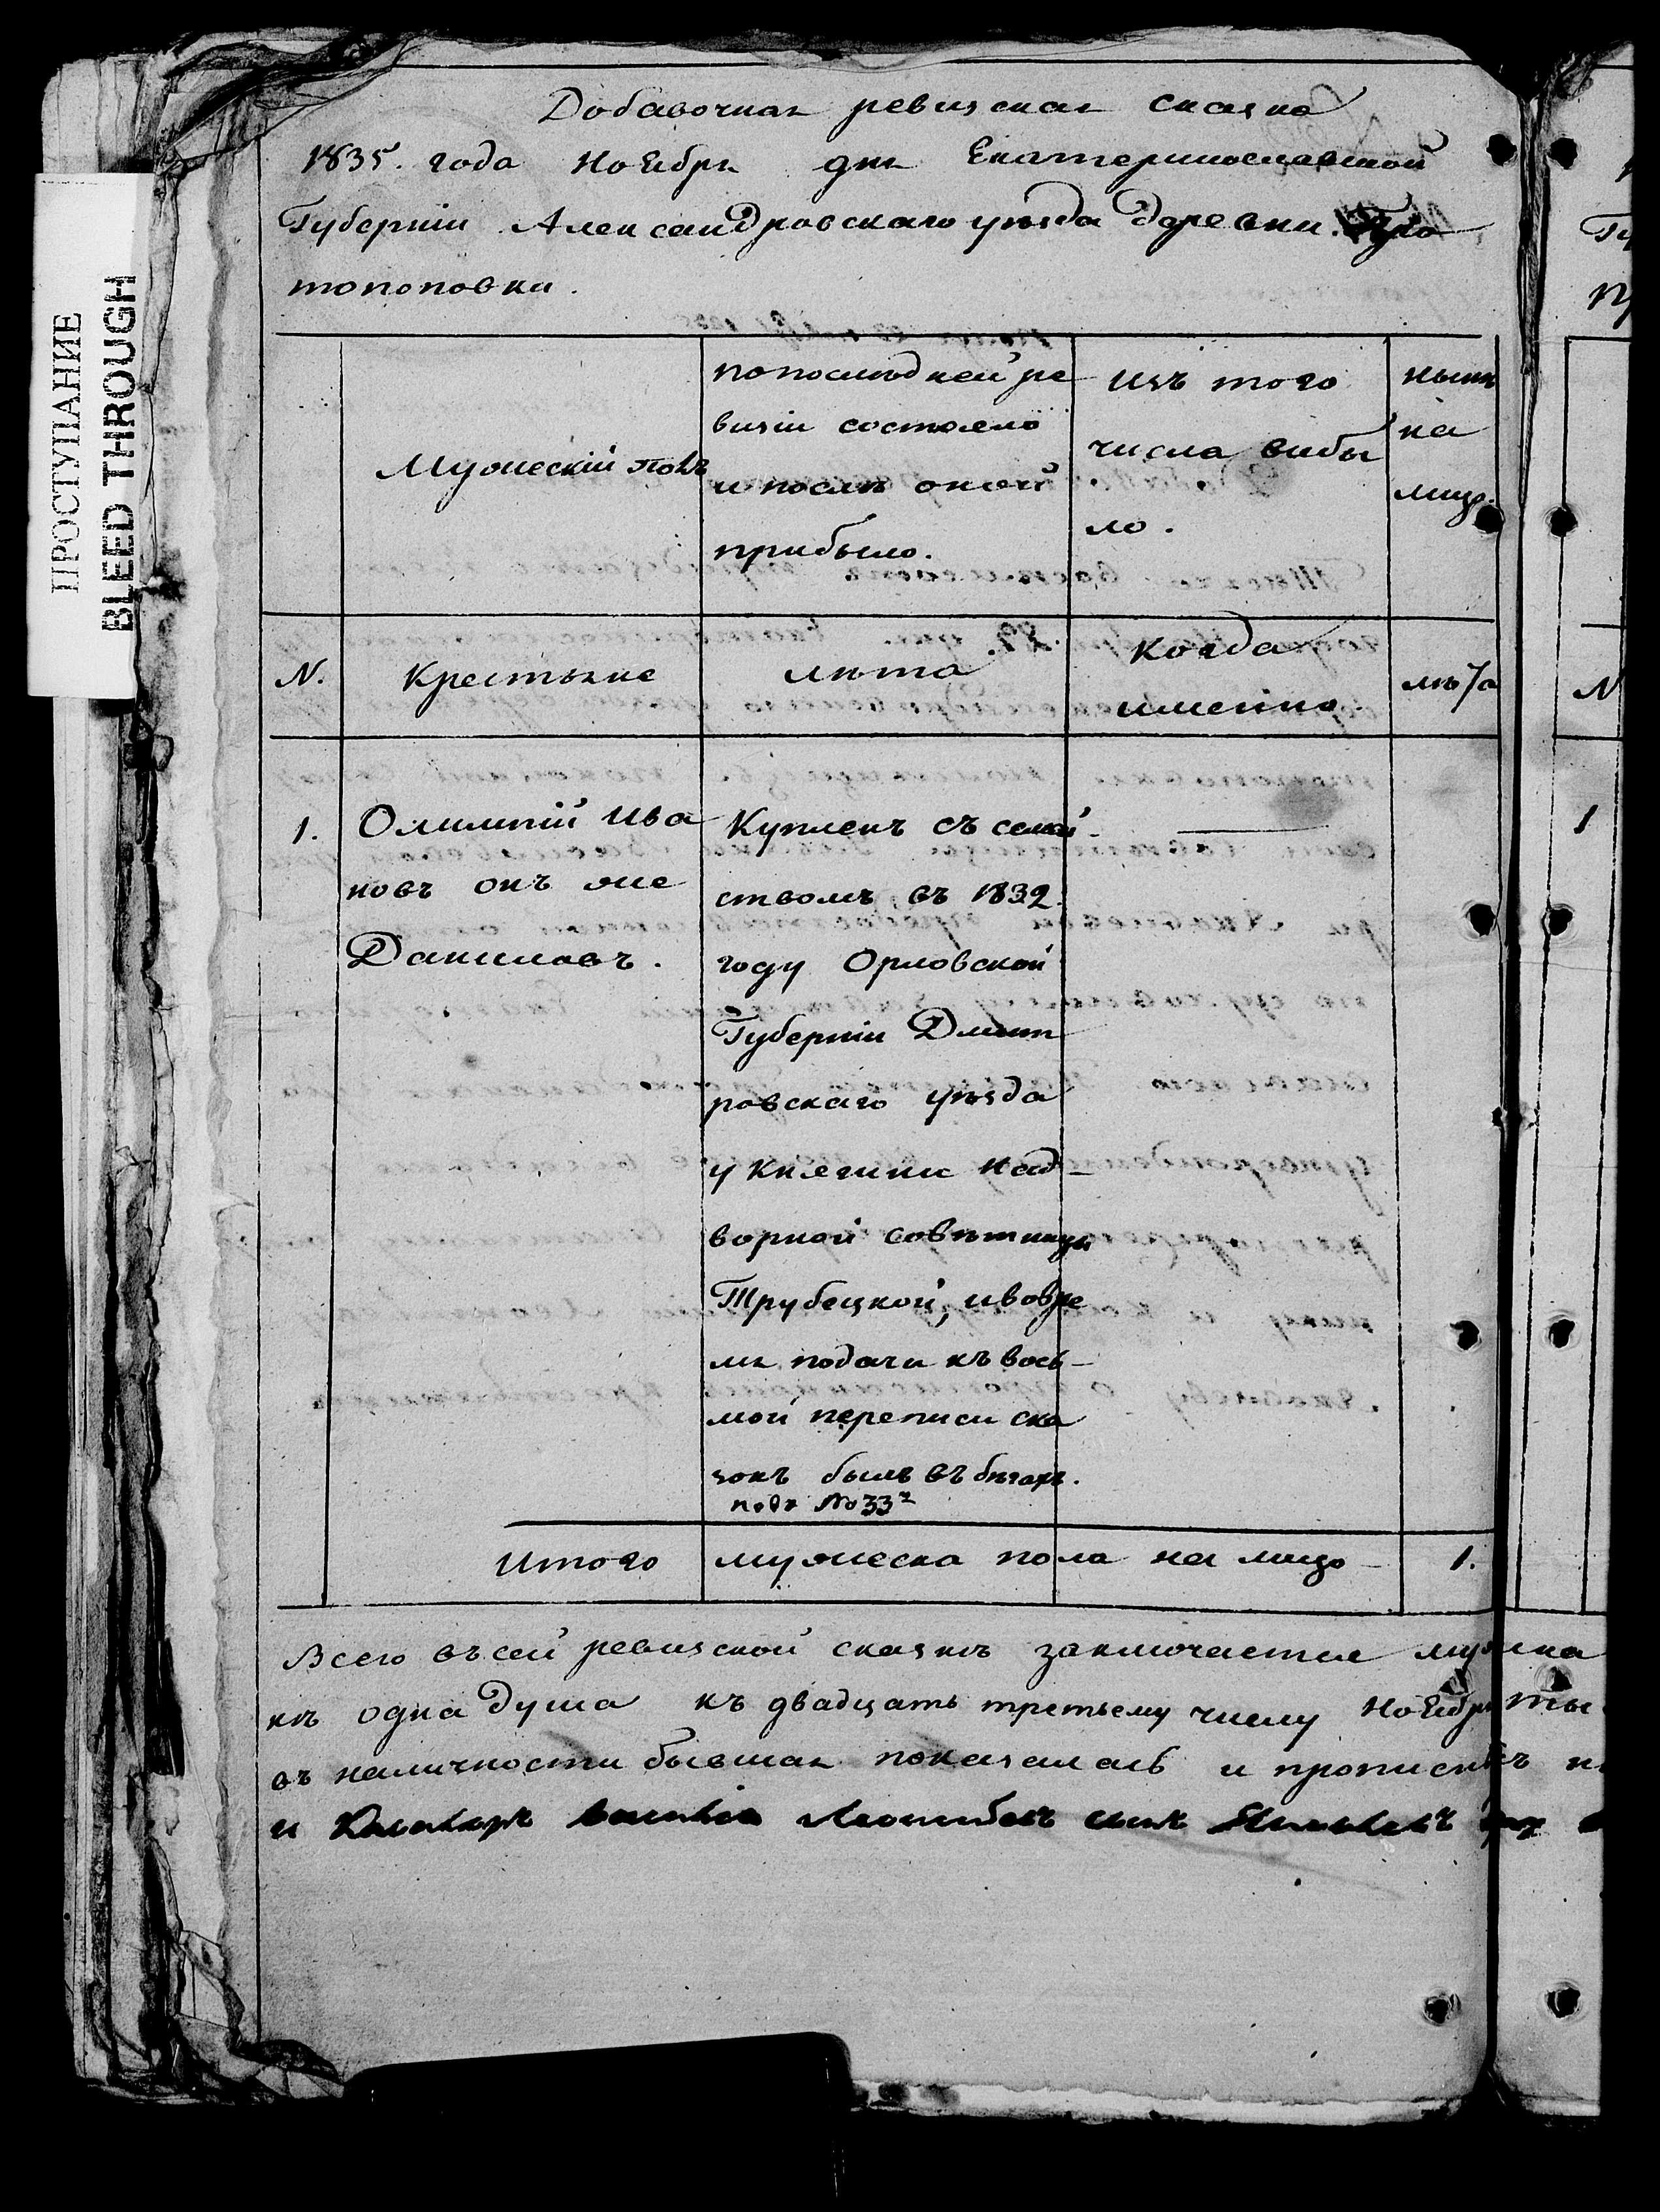 ПРОСТУПАНИЕ
BLEED THROUGH
Добавочная ревизская сказка
1835. года Ноября дня Екатеринославской
Губерніи Александровскаго уѣзда деревни Про
топоповки.
Мужескій полъ
по послѣдней ре
визіи состояло
и послѣ оной
прибыло.
изъ того
числа выбы
ло.
нынѣ
на
лицо.
N.
Крестьяне
лѣта
когда
именно.
лѣта
N
1.
Олимпій Ива
новъ онъ же
Даниловъ.
Купленъ съ семей-
ствомъ въ 1832
году Орловской
Губерніи Дмит
ровскаго уѣзда
у Княгини Над-
ворной совѣтницы
Трубецкой, и вовре
мя подачи къ вось-
мой переписи ска
зокъ былъ въ бѣгахъ.
подъ No 33
1
Итого мужеска пола на лицо 1.
Всего въ сей ревизской сказкѣ заключается
одна душа къ двадцать третьему числу Ноября
въ наличности бывшая показалась и
и